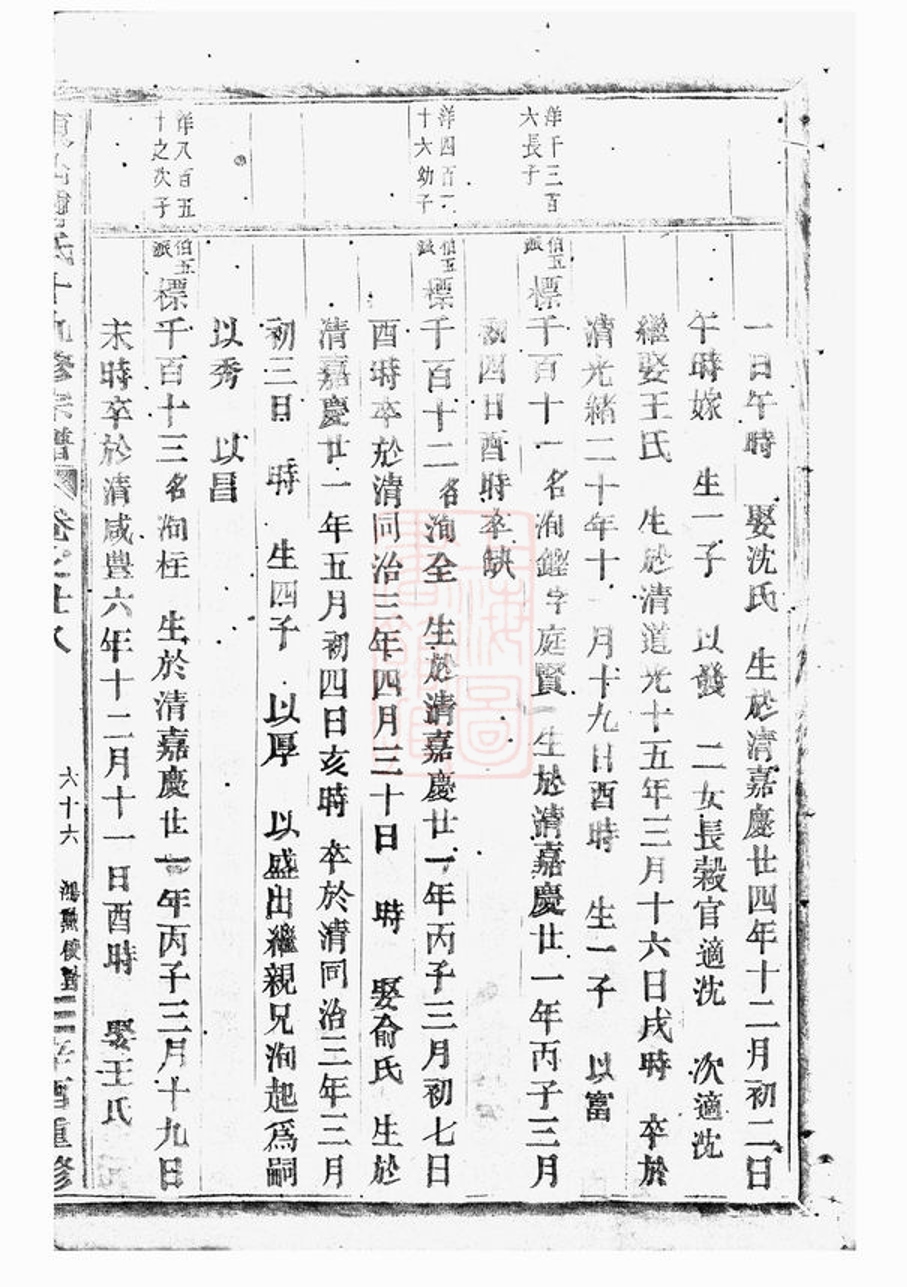 一日午時 娶沈氏 生於清嘉慶廿四年十二月初二日
午時嫁 生一子 以發 二女長穀官適沈 次適沈
繼娶王氏 生於清道光十五年三月十六日戌時 卒於
清光緒二十年十一月十九日酉時 生一子 以富
洋千三百
六長子
伯五
派
標千百十一 名洵鏗字庭賢 生於清嘉慶廿一年丙子三月
初四日酉時卒缺
洋四百一
十六幼子
伯五
派
標千百十二 名洵全 生於清嘉慶廿一年丙子三月初七日
酉時卒於清同治三年四月三十日 時 娶俞氏 生於
清嘉慶廿一年五月初四日亥時 卒於清同治三年三月
初三日 時 生四子 以厚 以盛出繼親兄洵起爲嗣
以秀 以昌
洋八百五
十之次子
伯五
派
標千百十三 名洵柱 生於清嘉慶廿一年丙子三月十九日
未時卒於清咸豊六年十二月十一日酉時 娶王氏
氏十九修宗譜 卷之廿八 六十六 辛酉重修